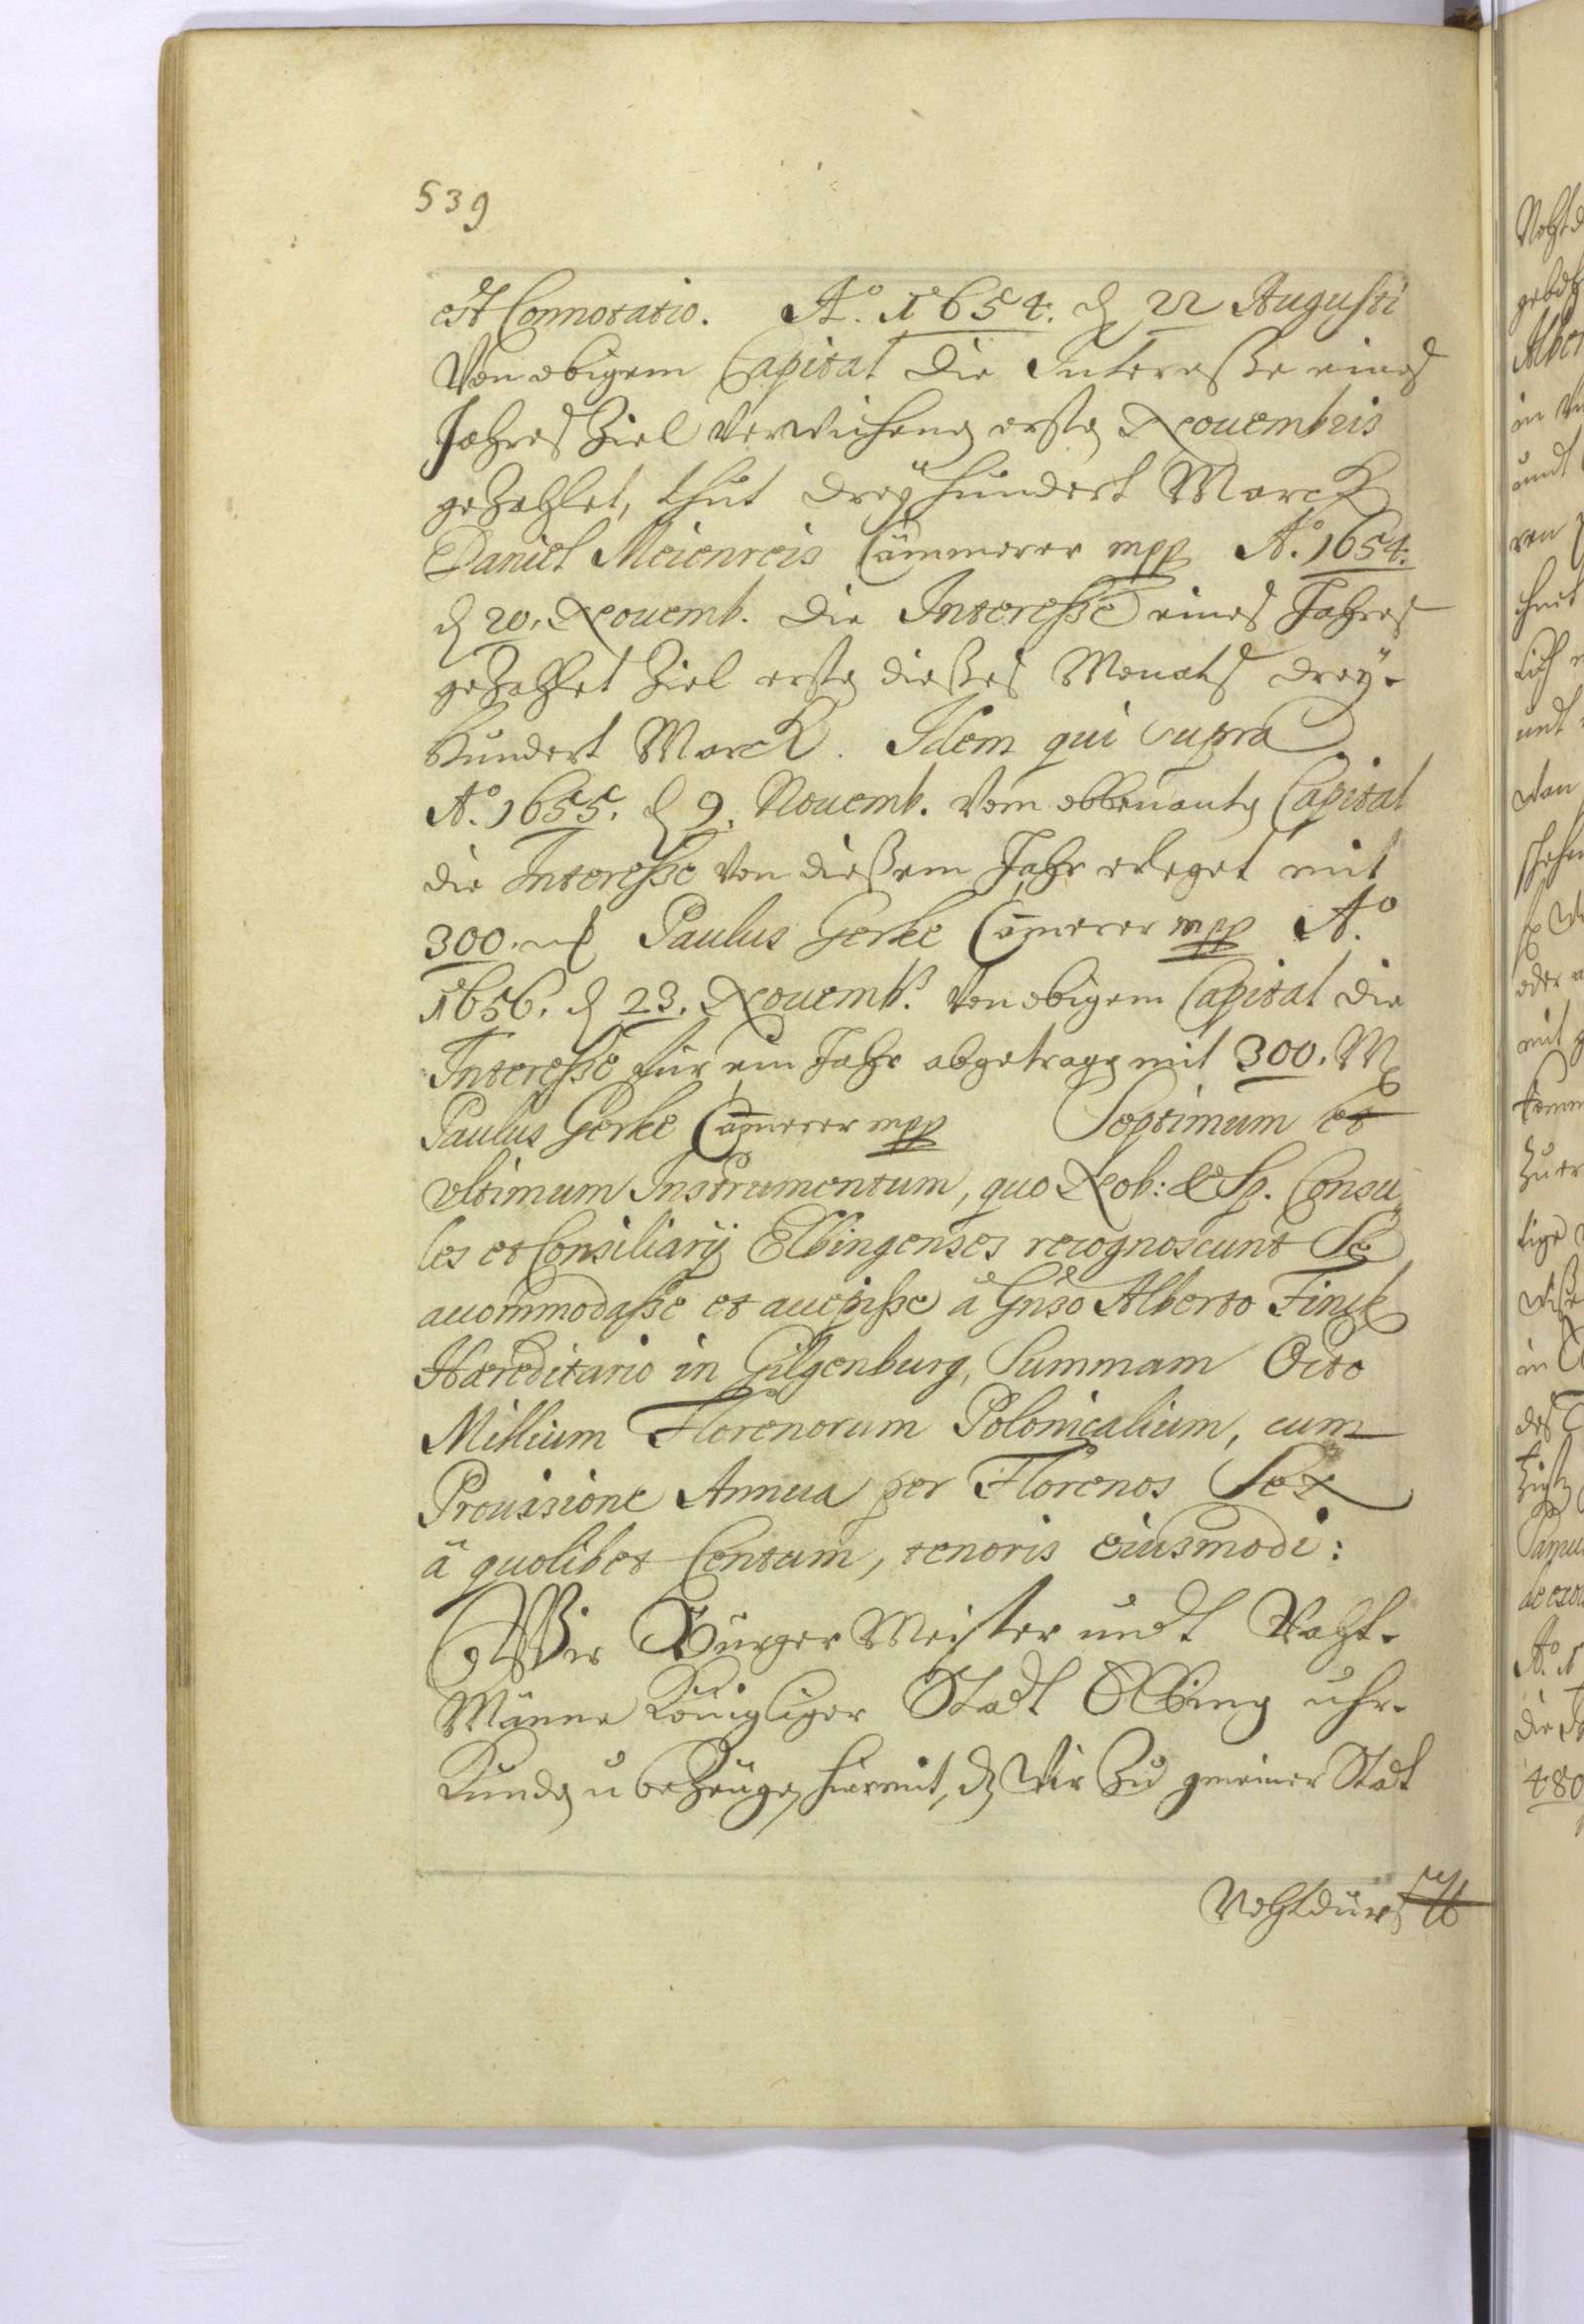 539
est Connotatio. Aº. 1654. d 22 Augusti
Von obigem Capital die Interesse eines
Jahres Ziel verwichenen ersten Nouembris
gezahlet, thut dreÿhundert Marck
Daniel Meienreis Cämmerer mpp Aº. 1654.
d 20. Nouemb. die Interesse eines Jahres
gezahlet Ziel ersten dieses Monats dreÿ-
hundert Marck. Idem qui supra
Aº. 1655. d 9. Nouemb. Vom obbenanten Capital
die Interesse von diesem Jahr erleget mit
300. Paulus Gerke Cam̄erer mpp Aº.
1656. d 23. Nouemb. Von obigem Capital die
Interesse für ein Jahr abgetragen mit 300. M
Paulus Gerke Cam̄erer mpp Septimum et
vltimum Instrumentum, quo Nob: & Sp. Consu-
les et Consiliarÿ Elbingenses recognoscunt Se
accommodasse et accepisse à Gnso Alberto Finck
Hæreditario in Gilgenburg, Summam Octo
Millium Florenorum Polonicalium, cum
Prouisione Annua per Florenos Sex
à quolibet Centum, tenoris eiusmodi:
Wir Bürger Meister undt Raht-
Männe Königlicher Stadt Elbing uhr-
kunden u bezeugen hiermit, dz wir zu gemeiner Stadt